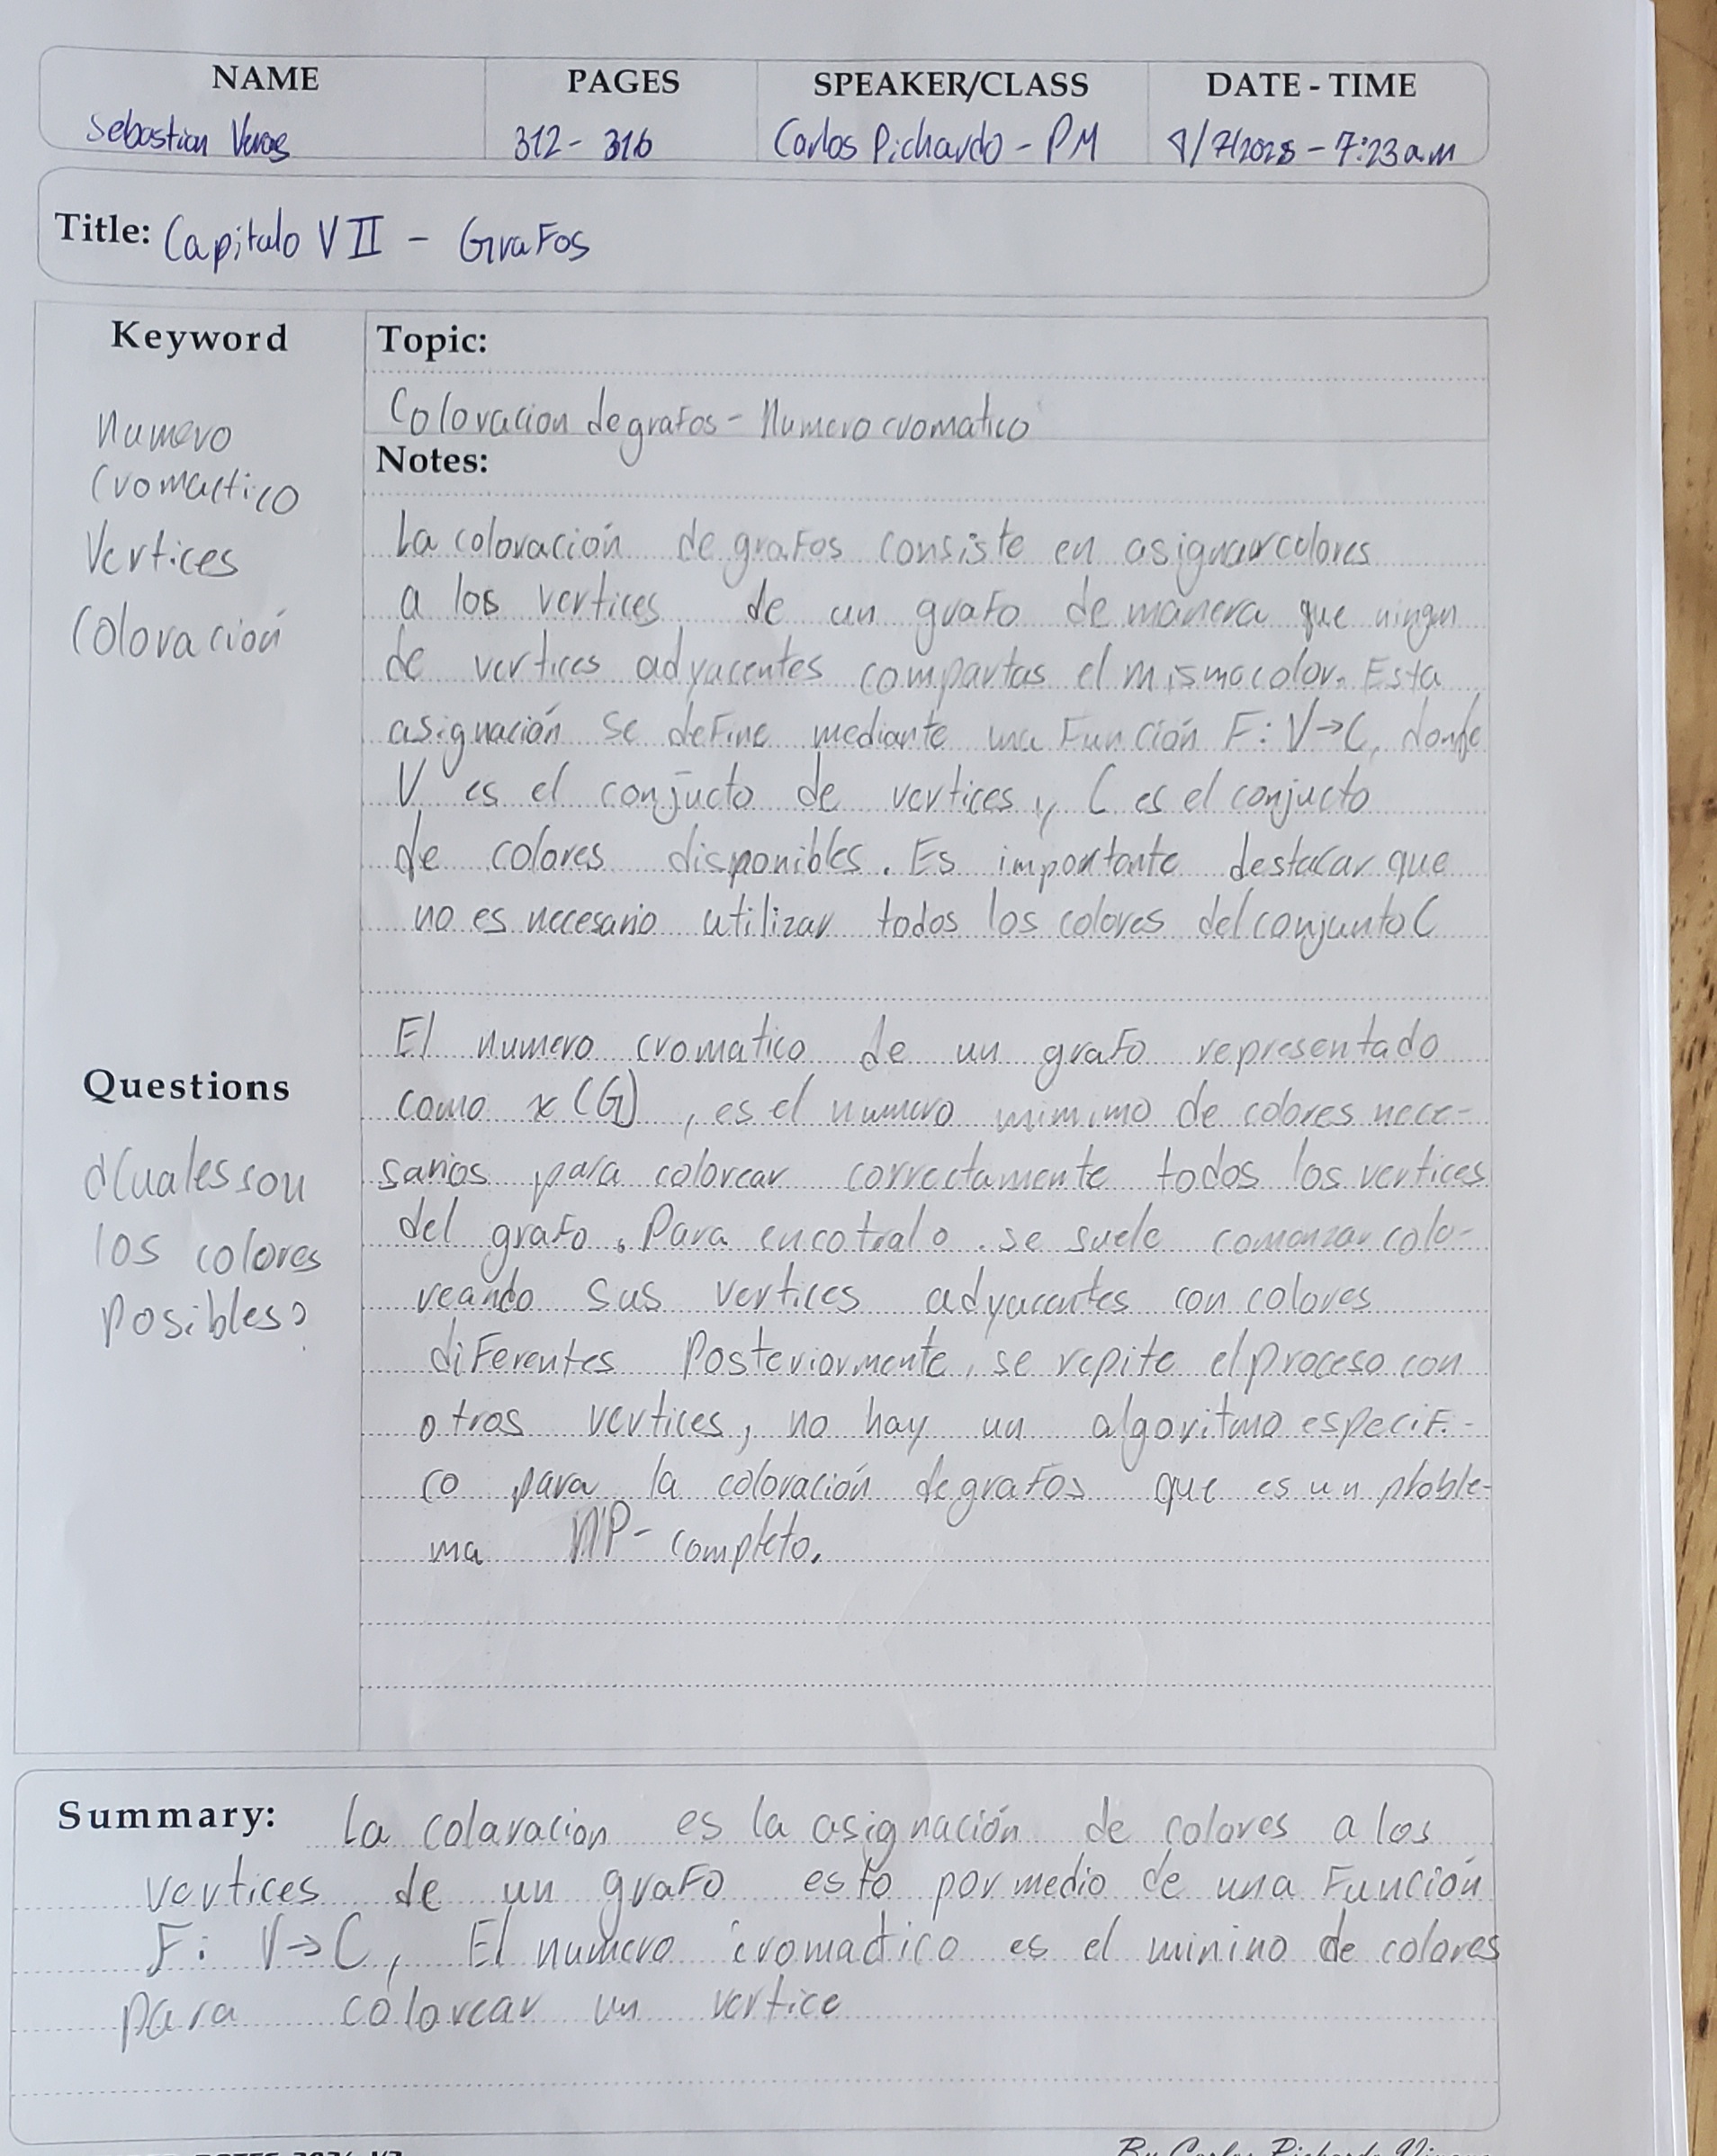 NAME PAGES SPEAKER/CLASS DATE - TIME
Sebastian Veras 312 - 316 Carlos Pichardo - PM /7/2025 - 7:23am
Title: Capitulo VII - Grafos
Keyword
Numero
Cromactico
Vertices
Coloración
Questions
¿Cuales son
los colores
posibles?
Topic:
Coloracion de grafos - Numero cromatico
Notes:
La coloración de grafos consiste en asignar colores
a los vertices de un grafo de manera que ningun
de vertices adyacentes compartas el mismo color. Esta
asignación se define mediante una Función F: V→C, donde
V es el conjucto de vertices y C es el conjucto
de colores disponibles. Es importante destacar que
no es necesario utilizar todos los colores del conjunto C
El numero cromatico de un grafo representado
como x(G), es el numero minimo de colores nece-
sarios para colorear correctamente todos los vertices
del grafo. Para encotralo. se suele comenzar colo-
reando sus vertices adyacentes con colores
diferentes Posteriormente, se repite el proceso con
otros vertices, no hay un algoritmo especifi-
co para la coloración de grafos que es un proble-
ma NP-completo.
Summary: La colaracion es la asignación de colores a los
vertices de un grafo esto por medio de una Función
F: V→C, El numero cromactico es el minino de colores
para colorear un vertice